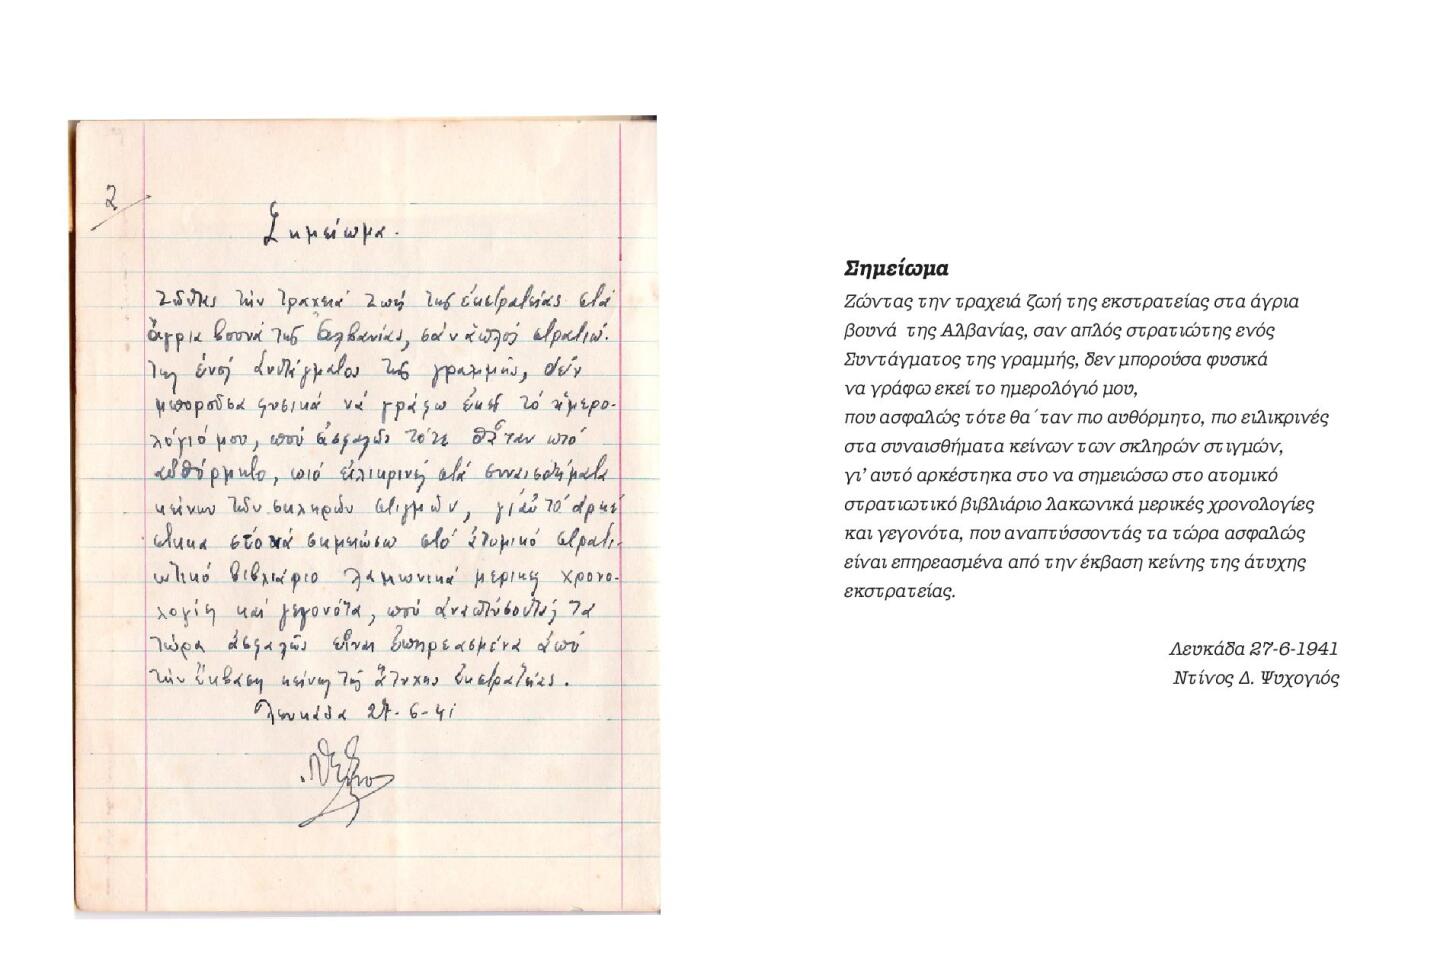 2
Σημείωμα.
Ζῶντας τὴν τραχειά ζωή τῆς ἐκστρατείας στά
ἄγρια βουνά τῆς Ἀλβανίας, σάν ἁπλός στρατιώ-
της ἑνός Συντάγματος τῆς γραμμῆς, δέν
μποροῦσα φυσικά νά γράφω ἐκεῖ τό ἡμερο-
λόγιό μου, πού ἀσφαλῶς τότε θἆταν πιό
αὐθόρμητο, πιό εἰλικρινές στά συναισθήματα
κείνων τῶν σκληρῶν στιγμῶν, γι' αὐτό ἀρκέ
στηκα στό νά σημειώσω στό ἀτομικό στρατι-
ωτικό βιβλιάριο λακωνικά μερικές χρονο-
λογίες καί γεγονότα, πού ἀναπτύσοντάς τα
τώρα ἀσφαλῶς εἶναι ἐπηρεασμένα ἀπό
τήν ἔκβαση κείνης τῆς ἄτυχης ἐκστρατείας.
Λευκάδα 27-6-41
Σημείωμα
Ζώντας την τραχειά ζωή της εκστρατείας στα άγρια
βουνά της Αλβανίας, σαν απλός στρατιώτης ενός
Συντάγματος της γραμμής, δεν μπορούσα φυσικά
να γράφω εκεί το ημερολόγιό μου,
που ασφαλώς τότε θα ΄ταν πιο αυθόρμητο, πιο ειλικρινές
στα συναισθήματα κείνων των σκληρών στιγμών,
γι' αυτό αρκέστηκα στο να σημειώσω στο ατομικό
στρατιωτικό βιβλιάριο λακωνικά μερικές χρονολογίες
και γεγονότα, που αναπτύσσοντάς τα τώρα ασφαλώς
είναι επηρεασμένα από την έκβαση κείνης της άτυχης
εκστρατείας.
Λευκάδα 27-6-1941
Ντίνος Δ. Ψυχογιός